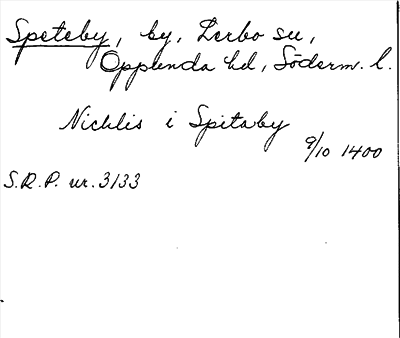 Speteby, by, Lerbo sn,
Oppunda hd, Söderm. l.
Nichlis i Spitaby
9/10 1400
S.R.P. nr. 3133